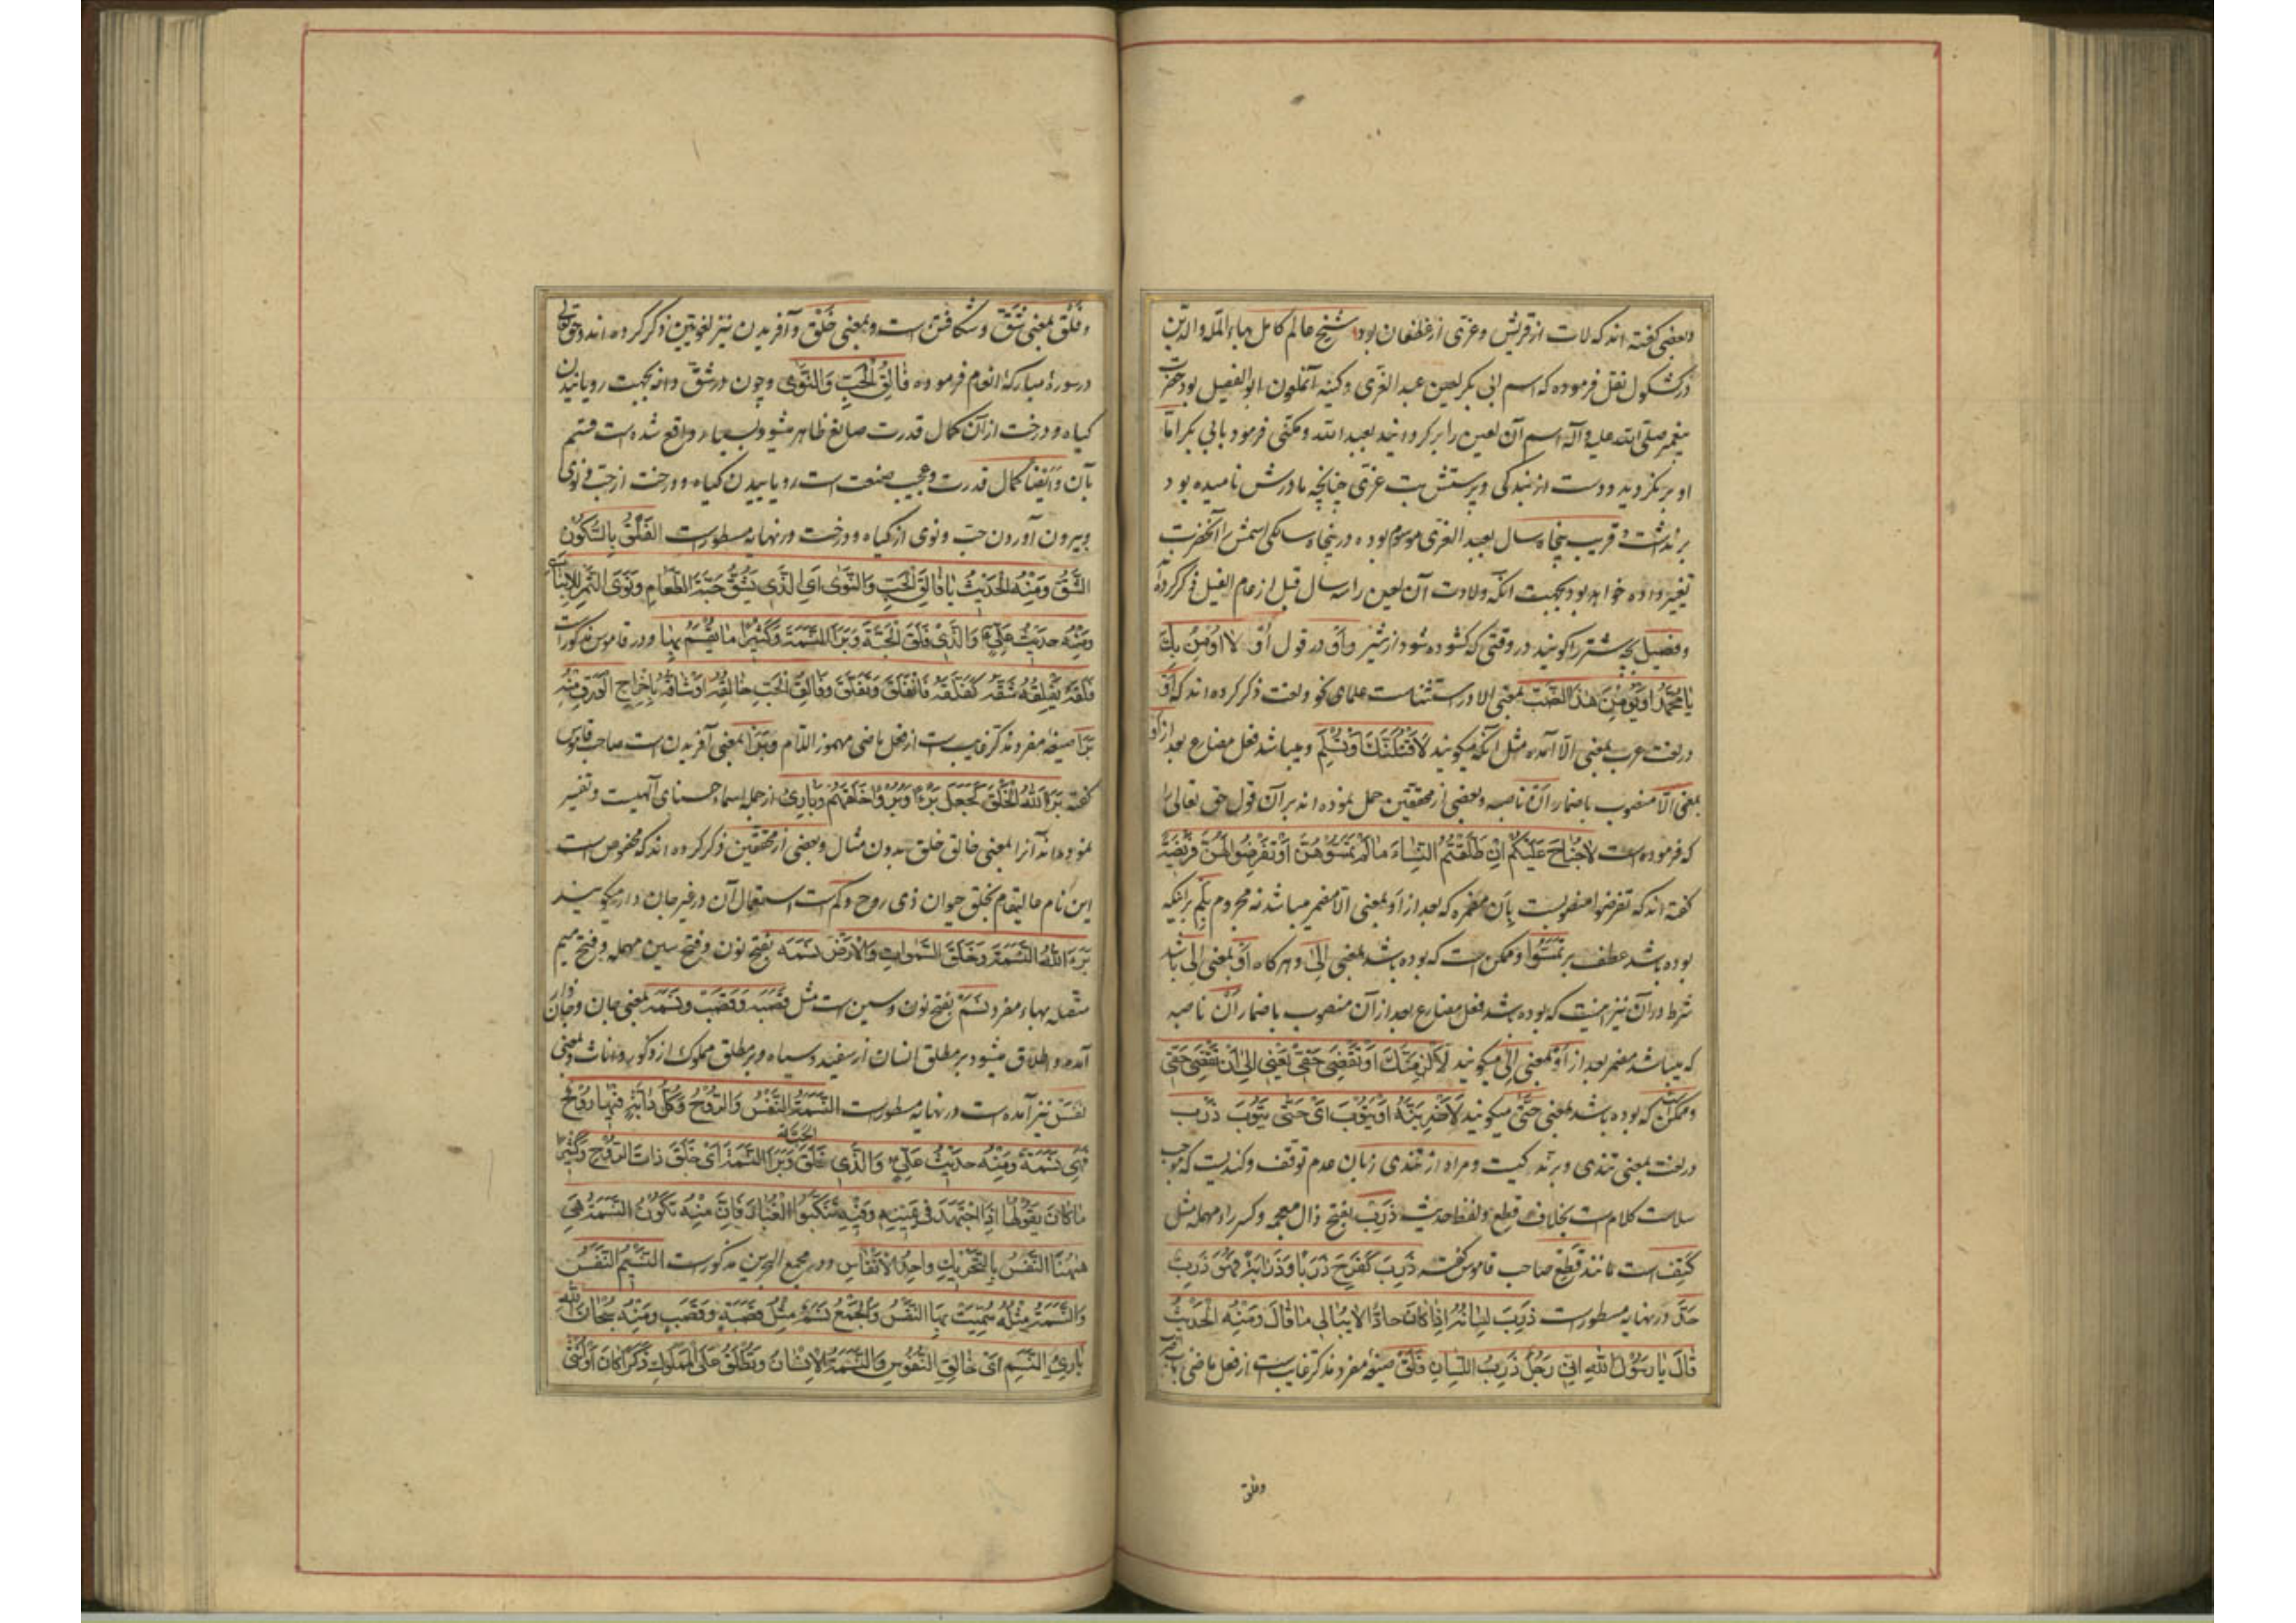 وبعضی گفته اند که لات از قریش وعزّی از غطفان بود شیخ عالم کامل بهاء الملّه والدّین
در کشکول نقل فرموده که اسم ابی بکر لعین عبد العزّی وکنیه آنملعون ابو الفصیل بود حضرت
پیغمبر صلّی الله علیه وآله اسم آن لعین را برگردانید بعبد الله ومکنّی فرمود بابی بکر امّا
او برنگردید ودست از بندگی وپرستش بت عزّی چنانچه مادرش نامیده بود
برنداشت وقریب پنجاه سال بعبد العزّی موسوم بوده در پنجاه سالگی اسمش را آنحضرت
تغییر داده خواهد بود بجهت آنکه ولادت آن لعین را سه سال قبل از عام الفیل ذکر کرده اند
وفصیل بچه شتر را گویند در وقتی که گشوده شود از شیر واَوْ در قول اَوْ لا اُومِنُ بِكَ
یا مُحَمَّدُ اَوْ یُؤْمِنَ هٰذَا الضَّبُّ بمعنی الا در استثناست علمای نحو ولغت ذکر کرده اند که اَوْ
در لغت عرب بمعنی الّا آمده مثل آنکه میگویند لَاَقْتُلَنَّكَ اَوْ تُسْلِمَ ومیباشد فعل مضارع بعد از اَوْ
بمعنی الّا منصوب باضمار اَنْ ناصبه وبعضی از محققین حمل نموده اند بر آن قول حق تعالی را
که فرموده است لا جُناحَ عَلَیْکُمْ اِنْ طَلَّقْتُمُ النِّساءَ ما لَمْ تَمَسُّوهُنَّ اَوْ تَفْرِضُوا لَهُنَّ فَرِیضَةً
گفته اند که تفرضوا منصوبست بِاَن مضمره که بعد از اَوْ بمعنی الّا مضمر میباشد نه مجزوم بلَم بر اینکه
بوده باشد عطف بر تَمَسُّوا وممکن است که بوده باشد بمعنی اِلیٰ وهر گاه اَوْ بمعنی اِلی باشد
شرط در آن نیز اینست که بوده باشد فعل مضارع بعد از آن منصوب باضمار اَنْ ناصبه
که میباشد مضمر بعد از اَوْ بمعنی اِلیٰ میگویند لَاَلْزِمَنَّكَ اَوْ تَقْضِیَ حَقّی یَعْنی اِلیٰ اَنْ تَقْضِیَ حَقّی
وممکن است که بوده باشد بمعنی حَتّٰی میگویند لَاَضْرِبَنَّهُ اَوْ یَتُوبَ اَیْ حَتّٰی یَتُوبَ ذَرْب
در لغت بمعنی تندی وبرندگیست ومراد از تندی زبان عدم توقف وکندیست که موجب
سلاست کلام است بخلاف قطع ولفظ حدیث ذَرِب بفتح ذال معجمه وکسر راء مهمله مثل
کَتِف است مانند قَطِع صاحب قاموس گفته ذَرِبَ کَفَرِحَ ذَرَبًا وَذَرابَةً فَهُوَ ذَرِبٌ
حَدَّ ودر نهایه مسطور است ذَرِبَ لِسانُهُ اِذا کانَ حادًّا لا یُبالی ما قالَ وَمِنْهُ الْحَدیثُ
قالَ یا رَسُولَ اللهِ اِنّی رَجُلٌ ذَرِبُ اللِّسانِ فَلَقَ صیغه مفرد مذکر غایب است از فعل ماضی
وفلق
وفَلْق بمعنی شَقّ وشکافتن است وبمعنی خَلْق وآفریدن نیز لغویین ذکر کرده اند وحق تعالی
در سورهٔ مبارکهٔ انعام فرموده فالِقُ الْحَبِّ وَالنَّوٰی وچون در شقّ دانه بجهت رویانیدن
گیاه ودرخت از آن کمال قدرت صانع ظاهر میشود بسیار واقع شده است قسم
بآن وَایضًا کمال قدرت وعجیب صنعت است رویانیدن گیاه ودرخت از حَبّ ونَوٰی
وبیرون آوردن حبّ ونوی از گیاه ودرخت در نهایه مسطور است الفَلْقُ بِالسُّکُونِ
الشَّقُّ وَمِنْهُ الْحَدیثُ یا فالِقَ الْحَبِّ وَالنَّوٰی اَیِ الَّذی یَشُقُّ حَبَّةَ الطَّعامِ وَنَوَی التَّمْرِ لِلاِنْباتِ
وَمِنْهُ حَدیثُ عَلِیٍّ وَالَّذی فَلَقَ الْحَبَّةَ وَبَرَأَ النَّسَمَةَ وَکَثیرًا ما یُقْسِمُ بِها ودر قاموس مذکور است
فَلَقَهُ یَفْلِقُهُ شَقَّهُ کَفَلَّقَهُ فَانْفَلَقَ وَتَفَلَّقَ وَفالِقُ الْحَبِّ خالِقُهُ اَوْ شاقُّهُ بِاِخْراجِ الْوَرَقِ مِنْهُ
بَرَأَ صیغه مفرد مذکر غایب است از فعل ماضی مهموز اللّام وبَرَأَ بمعنی آفریدن است صاحب قاموس
گفته بَرَأَ اللهُ الْخَلْقَ کَجَعَلَ بَرْءًا وَبُرُوءًا خَلَقَهُمْ وبارِئ از جمله اسماء حسنای آلهیست وتفسیر
نموده اند آنرا بمعنی خالق خلق بدون مثال وبعضی از محققین ذکر کرده اند که مخصوص است
این نام عالیمقام بخلق حیوان ذی روح وکم است استعمال آن در غیر جان دار میگویند
بَرَءَ اللهُ النَّسَمَةَ وَخَلَقَ السَّمٰواتِ وَالْاَرْضَ نَسَمَه بفتح نون وفتح سین مهمله وفتح میم
متّصله بهاء مفرد نَسَمْ بفتح نون وسین است مثل قَصَبَه وَقَصَب ونَسَمَه بمعنی جان وجان دار
آمده واطلاق میشود بر مطلق انسان از سفید وسیاه وبر مطلق مملوک از ذکور واناث وبمعنی
نَفَس نیز آمده است در نهایه مسطور است النَّسَمَةُ النَّفْسُ وَالرُّوحُ وَکُلُّ دابَّةٍ فیها رُوحٌ
فَهِیَ نَسَمَةٌ وَمِنْهُ حَدیثُ عَلِیٍّ وَالَّذی فَلَقَ الحَبَّةَ وَبَرَأَ النَّسَمَةَ اَیْ خَلَقَ ذاتَ الرُّوحِ وَکَثیرًا
ما کانَ یَقُولُها اِذَا اجْتَهَدَ فی یَمینِهِ وَفیهِ تَنَکَّبُوا الْغُبارَ فَاِنَّ مِنْهُ تَکُونُ النَّسَمَةُ هِیَ
هٰهُنَا النَّفَسُ بِالتَّحْریكِ واحِدُ الْاَنْفاسِ ودر مجمع البحرین مذکور است النَّسیمُ النَّفَسُ
وَالنَّسَمَةُ مِثْلُهُ سُمِّیَتْ بِهَا النَّفْسُ وَالْجَمْعُ نَسَمٌ مِثْلُ قَصَبَةٍ وَقَصَبٍ وَمِنْهُ سُبْحانَ اللهِ
بارِئِ النَّسَمِ اَیْ خالِقِ النُّفُوسِ وَالنَّسَمَةُ الْاِنْسانُ وَتُطْلَقُ عَلَی الْمَمْلُوكِ ذَکَرًا کانَ اَوْ اُنْثٰی